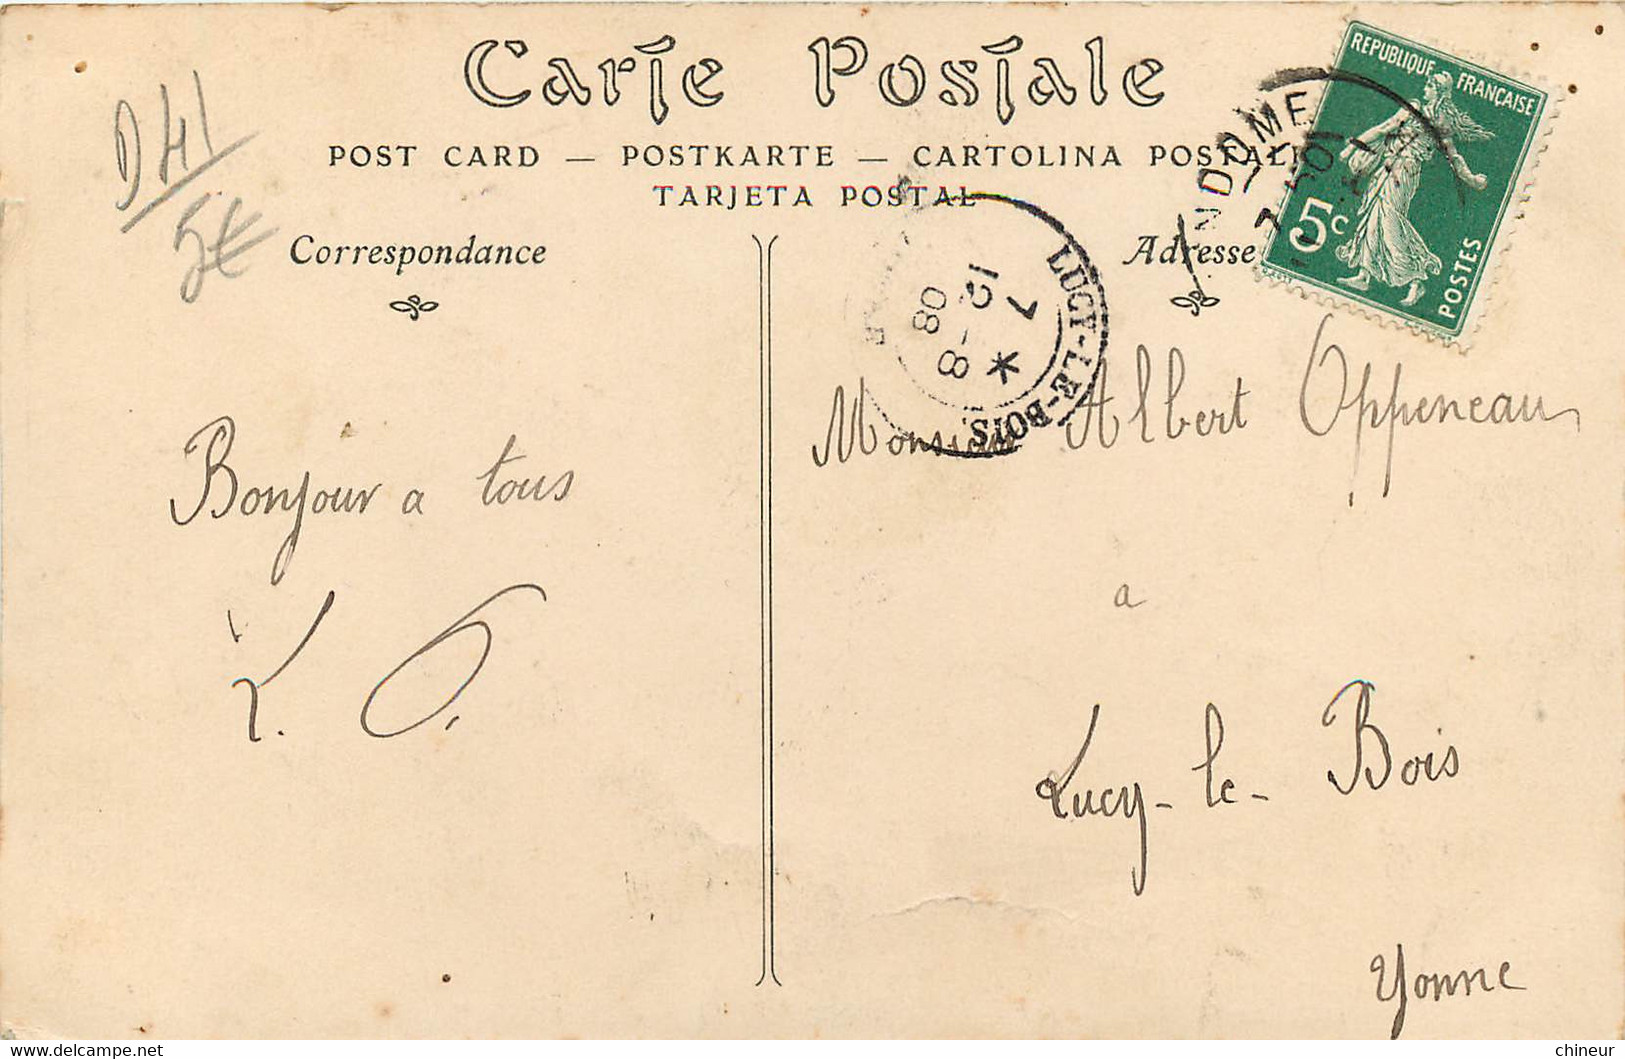 Carte Postale
POST CARD — POSTKARTE — CARTOLINA POSTALE
TARJETA POSTAL
D 41
5€
Correspondance
Adresse
REPUBLIQUE FRANÇAISE
5c
POSTES
NDOME
LUCY-LE-BOIS
12
7 - 8
08
*
Bonjour a tous
L. O.
Monsieur Albert Oppeneau
a
Lucy-le-Bois
Yonne
chineur